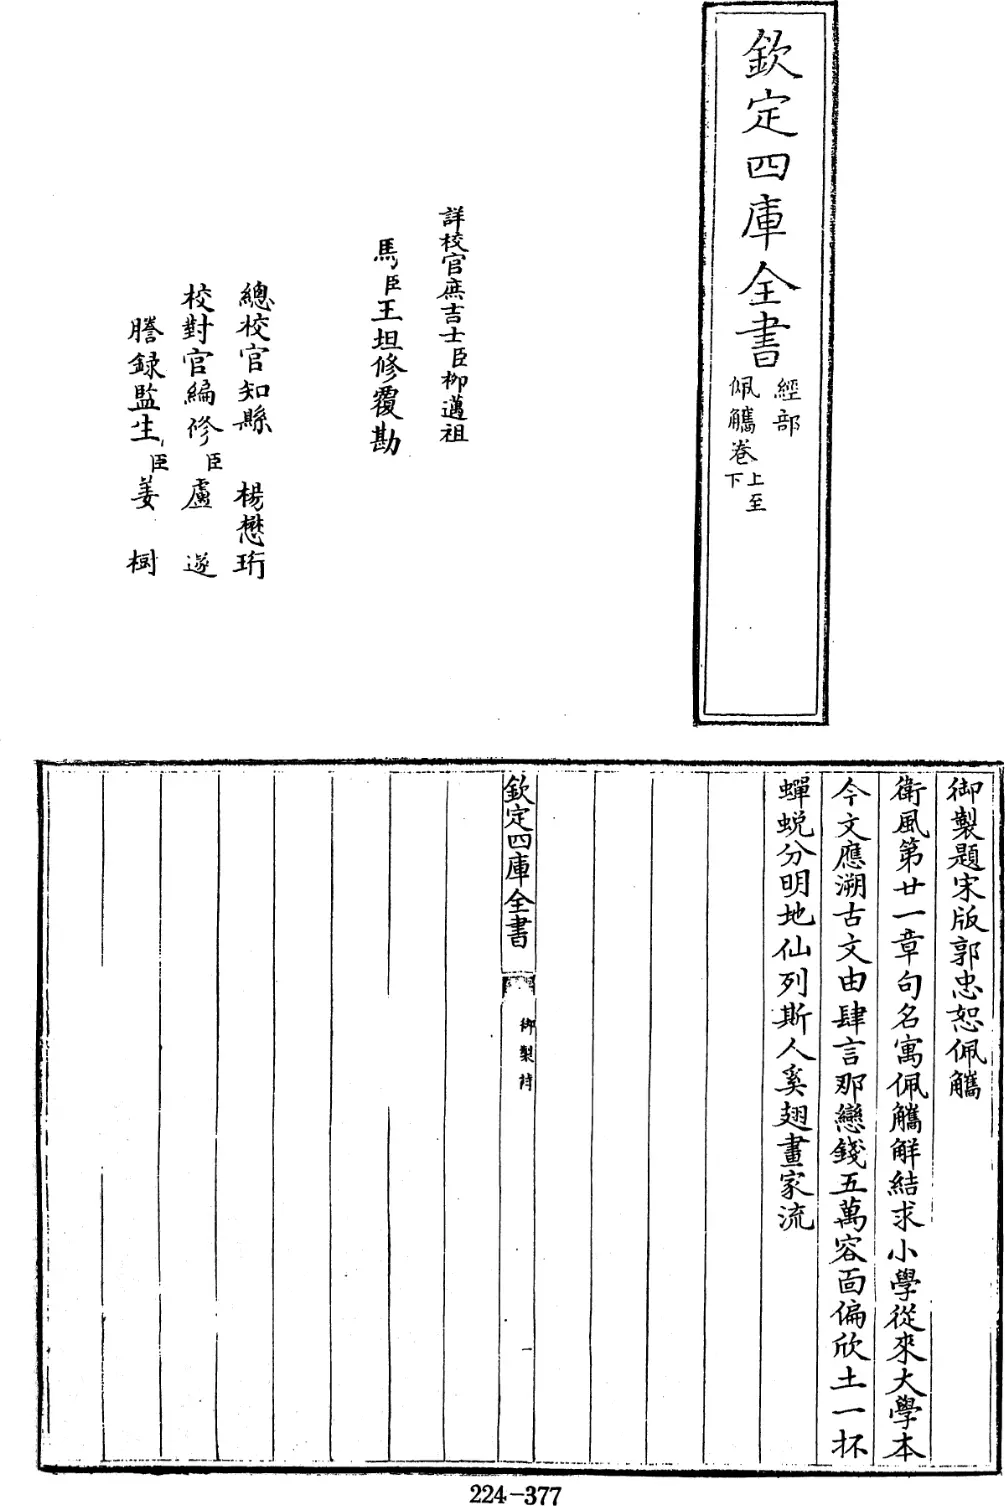 欽定四庫全書
經部
佩觿卷上至下
詳校官庶吉士臣柳邁祖
馬臣王坦修覆勘
總校官知縣楊懋珩
校對官編修臣盧遂
謄錄監生臣姜樹
御製題宋版郭忠恕佩觿
衛風第廿一章句名寓佩觿解結求小學從來大學本
今文應溯古文由肆言那戀錢五萬容面偏欣土一抔
蟬蛻分明地仙列斯人奚翅畫家流
欽定四庫全書
御製詩
一
224-377